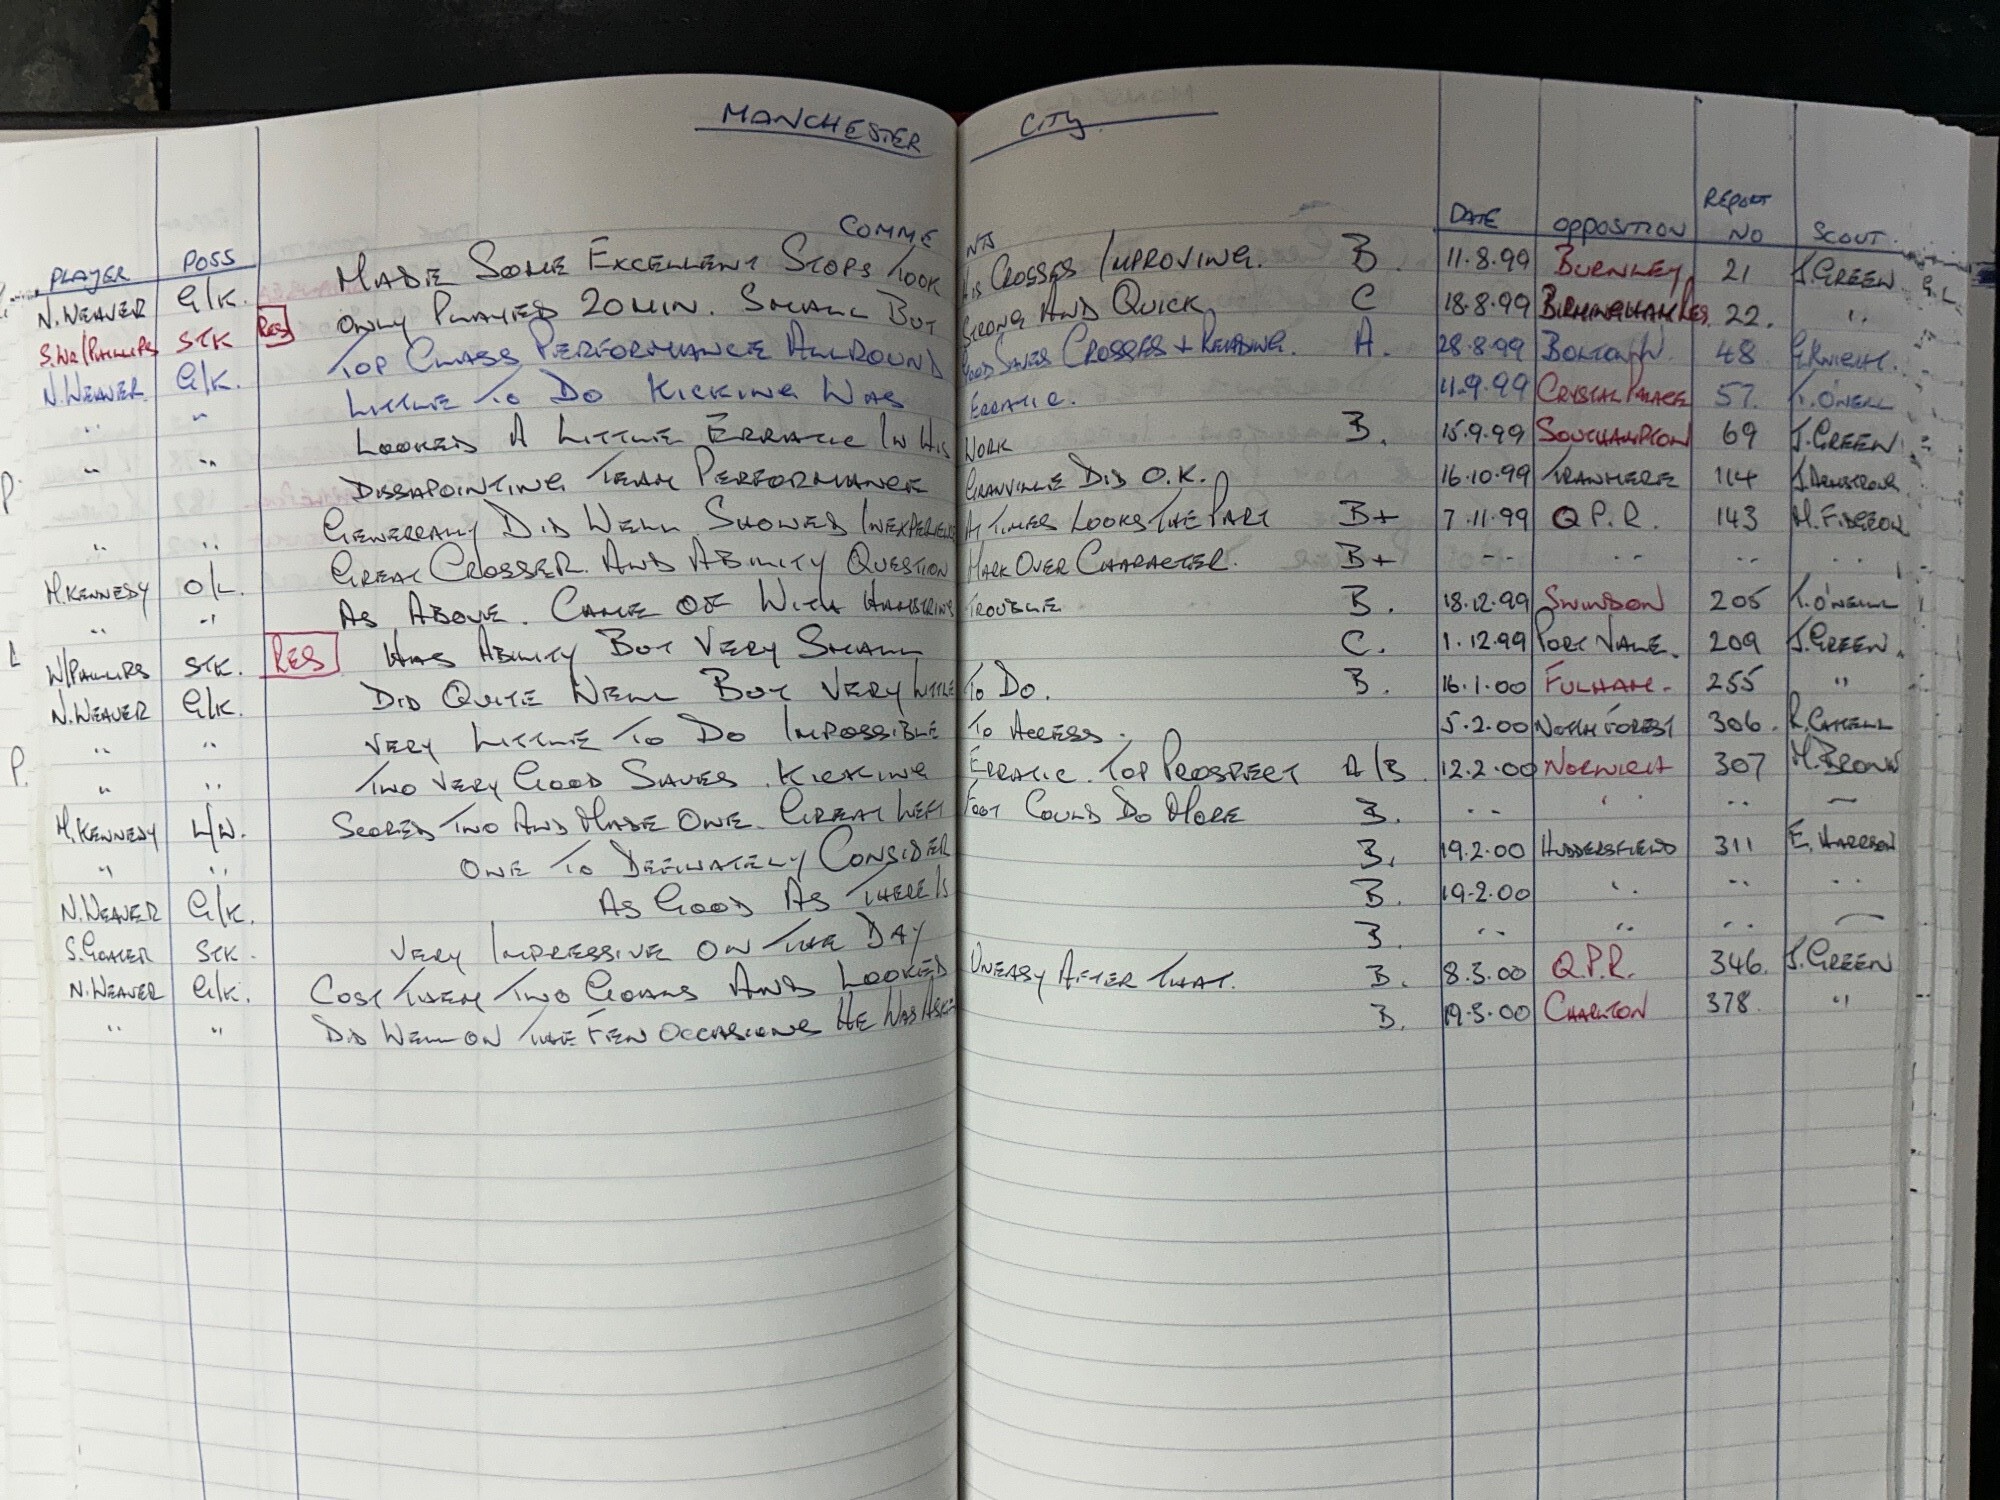 MANCHESTER CITY
PLAYER POSS COMMENTS DATE OPPOSITION REPORT NO SCOUT
N.WEAVER G/K. MADE SOME EXCELLENT STOPS TOOK HIS CROSSES IMPROVING. B. 11.8.99 BURNLEY 21 J.GREEN
S.WR/PHILLIPS STK RES ONLY PLAYED 20 MIN. SMALL BUT STRONG AND QUICK C 18.8.99 BIRMINGHAM RES. 22. "
N.WEAVER G/K. TOP CLASS PERFORMANCE ALLROUND GOOD SAVES CROSSES + READING. A. 28.8.99 BOLTON W. 48
" " LITTLE TO DO KICKING WAS ERRATIC. 11.9.99 CRYSTAL PALACE 57. T.O'NEILL
" " LOOKED A LITTLE ERRATIC IN HIS WORK B. 15.9.99 SOUTHAMPTON 69 J.GREEN
P. DISSAPOINTING TEAM PERFORMANCE GRANVILLE DID O.K. 16.10.99 TRANMERE 114 J.ARMSTRONG
" " GENERRALLY DID WELL SHOWED INEXPERIENCE AT TIMES LOOKS THE PART B+ 7.11.99 Q.P.R. 143
M.KENNEDY O/L. GREAT CROSSER AND ABILITY QUESTION MARK OVER CHARACTER. B+ " " " "
" " AS ABOVE. CAME OF WITH HAMSTRING TROUBLE B. 18.12.99 SWINDON 205 T.O'NEILL
W/PHILLIPS STK. RES HAS ABILITY BUT VERY SMALL C. 1.12.99 PORT VALE. 209 J.GREEN.
N.WEAVER G/K. DID QUITE WELL BUT VERY LITTLE TO DO. B. 16.1.00 FULHAM. 255 "
" " VERY LITTLE TO DO IMPOSSIBLE TO ACCESS. 5.2.00 NOTTM FOREST 306.
P. " " TWO VERY GOOD SAVES. KICKING ERRATIC. TOP PROSPECT A/B 12.2.00 NORWICH 307 M.BROWN
M.KENNEDY L/W. SCORED TWO AND MADE ONE. GREAT LEFT FOOT COULD DO MORE B. " " " "
" " ONE TO DEFINATELY CONSIDER B. 19.2.00 HUDDERSFIELD 311 E.HARRISON
N.WEAVER G/K. AS GOOD AS THERE IS B. 19.2.00 " " "
S.GOATER STK. VERY IMPRESSIVE ON THE DAY B. " " "
N.WEAVER G/K. COST THEM TWO GOALS AND LOOKED UNEASY AFTER THAT. B. 8.3.00 Q.P.R. 346. J.GREEN
" " DID WELL ON THE FEW OCCASIONS HE WAS B. 19.3.00 CHARLTON 378. "